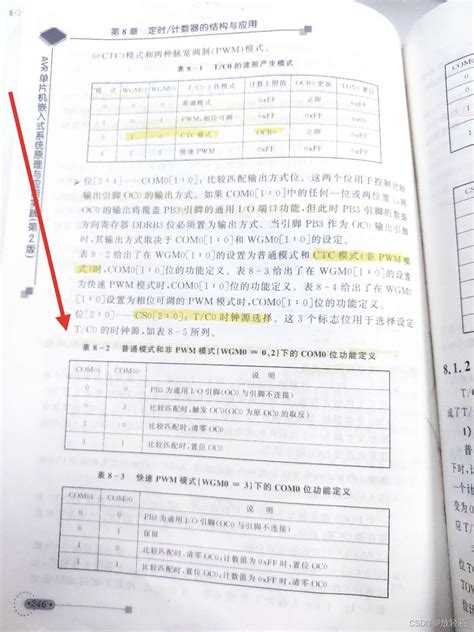 第8章 定时/计数器的结构与应用
0(CTC)模式和两种脉宽调制(PWM)模式。
表8-1 T/C0的波形产生模式
模式 WGM01 WGM00 T/C0工作模式 计数上限值 OCR0更新 TOV0置位
0 0 0 普通模式 0xFF 立即 0xFF
1 0 1 PWM,相位可调 0xFF
2 1 0 CTC模式 OCR0 立即 0xFF
3 1 1 快速PWM 0xFF 0xFF
位[5:4]——COM0[1:0]:比较匹配输出方式位。这两个位用于控制比较
输出引脚OC0的输出方式。如果COM0[1:0]中的任何一位或两位置
OC0的输出将覆盖PB3引脚的通用I/O端口功能,但此时PB3引脚的数据
方向寄存器DDRB3位必须置为输出方式。当引脚PB3作为OC0输出引脚
时,其输出方式取决于COM0[1:0]和WGM0[1:0]的设定。
表8-2给出了在WGM0[1:0]的设置为普通模式和CTC模式(非PWM模
式)时,COM0[1:0]位的功能定义。表8-3给出了在WGM0[1:0]的设置
为快速PWM模式时,COM0[1:0]位的功能定义。表8-4给出了在WGM0
[1:0]设置为相位可调的PWM模式时,COM0[1:0]位的功能定义。
位[2:0]——CS0[2:0]:T/C0时钟源选择。这3个标志位用于选择设定
T/C0的时钟源,如表8-5所列。
表8-2 普通模式和非PWM模式(WGM0=0,2)下的COM0位功能定义
COM01 COM00 说明
0 0 PB3为通用I/O引脚(OC0与引脚不连接)
0 1 比较匹配时,触发OC0(OC0为原OC0的取反)
1 0 比较匹配时,清零OC0
1 1 比较匹配时,置位OC0
表8-3 快速PWM模式(WGM0=3)下的COM0位功能定义
COM01 COM00 说明
0 0 PB3为通用I/O引脚(OC0与引脚不连接)
0 1 保留
1 0 比较匹配时,清零OC0;计数值为0xFF时,置位OC0
1 1 比较匹配时,置位OC0;计数值为0xFF时,清零OC0
246
AVR单片机嵌入式系统原理与应用实践(第2版)
8.1.2
T/
成了T/
1)
一个计
变为0
CSDN @放轻松